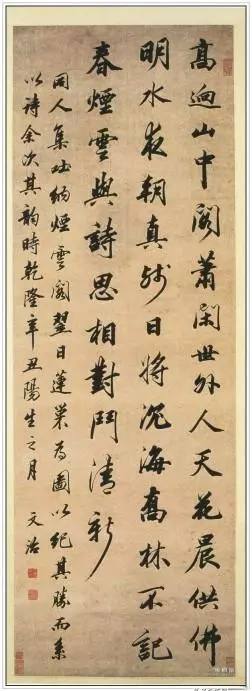 高迥山中閣蕭閑世外人天花晨供佛
明水夜朝真殘日將沉海喬林不記
春煙雲與詩思相對鬥清新
同人集拙納煙雲閣翌日蓮巢為圖以紀其勝而系
以詩余次其韻時乾隆辛丑陽生之月 文治